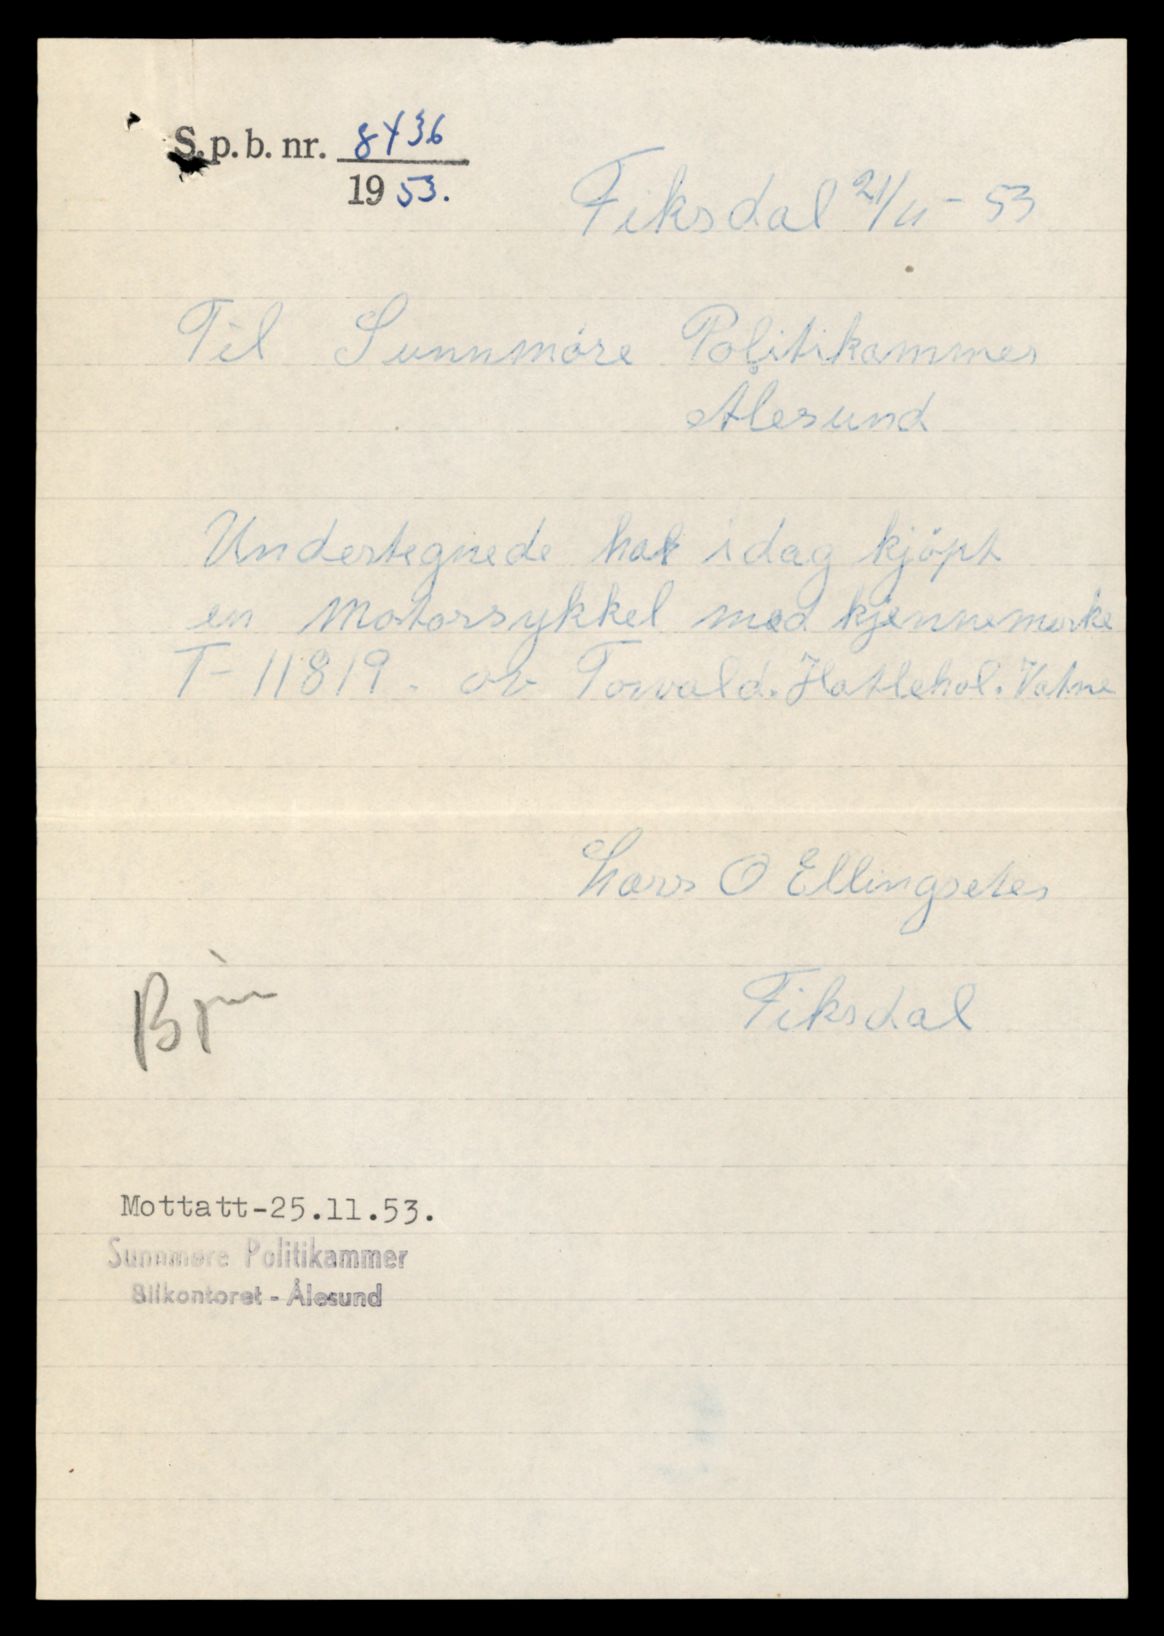 S.p.b. nr. 8436
1953.
Fiksdal 21/11 - 53
Til Sunnmöre Politikammer
Ålesund
Undertegnede har idag kjöpt
en Motorsykkel med kjennemerke
T-11819. av Torvald. Hatlehol. Vatne
Lars O Ellingseter
Fiksdal
Mottatt-25.11.53.
Sunnmøre Politikammer
Bilkontoret - Ålesund